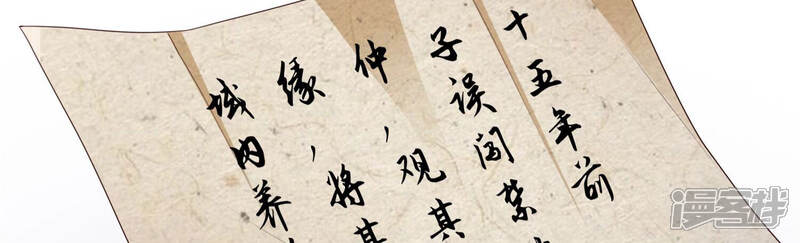 十五年前
子误闯禁
仲，观其
缘，将其
域内养
漫客栈